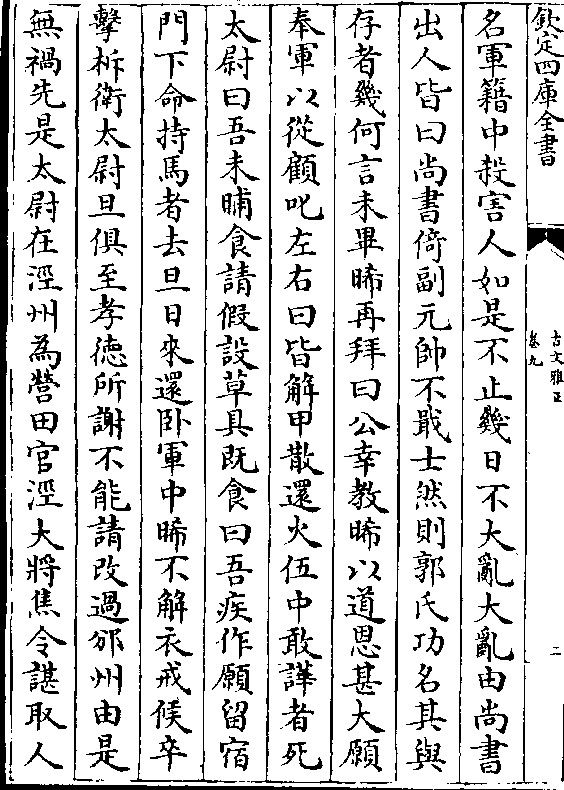 欽定四庫全書
古文雅正
卷九
二
名軍籍中殺害人如是不止幾日不大亂大亂由尚書
出人皆曰尚書倚副元帥不戢士然則郭氏功名其與
存者幾何言未畢晞再拜曰公幸教晞以道恩甚大願
奉軍以從顧叱左右曰皆解甲散還火伍中敢譁者死
太尉曰吾未晡食請假設草具既食曰吾疾作願留宿
門下命持馬者去旦日來還卧軍中晞不解衣戒候卒
擊柝衛太尉旦俱至孝徳所謝不能請改過邠州由是
無禍先是太尉在涇州為營田官涇大將焦令諶取人